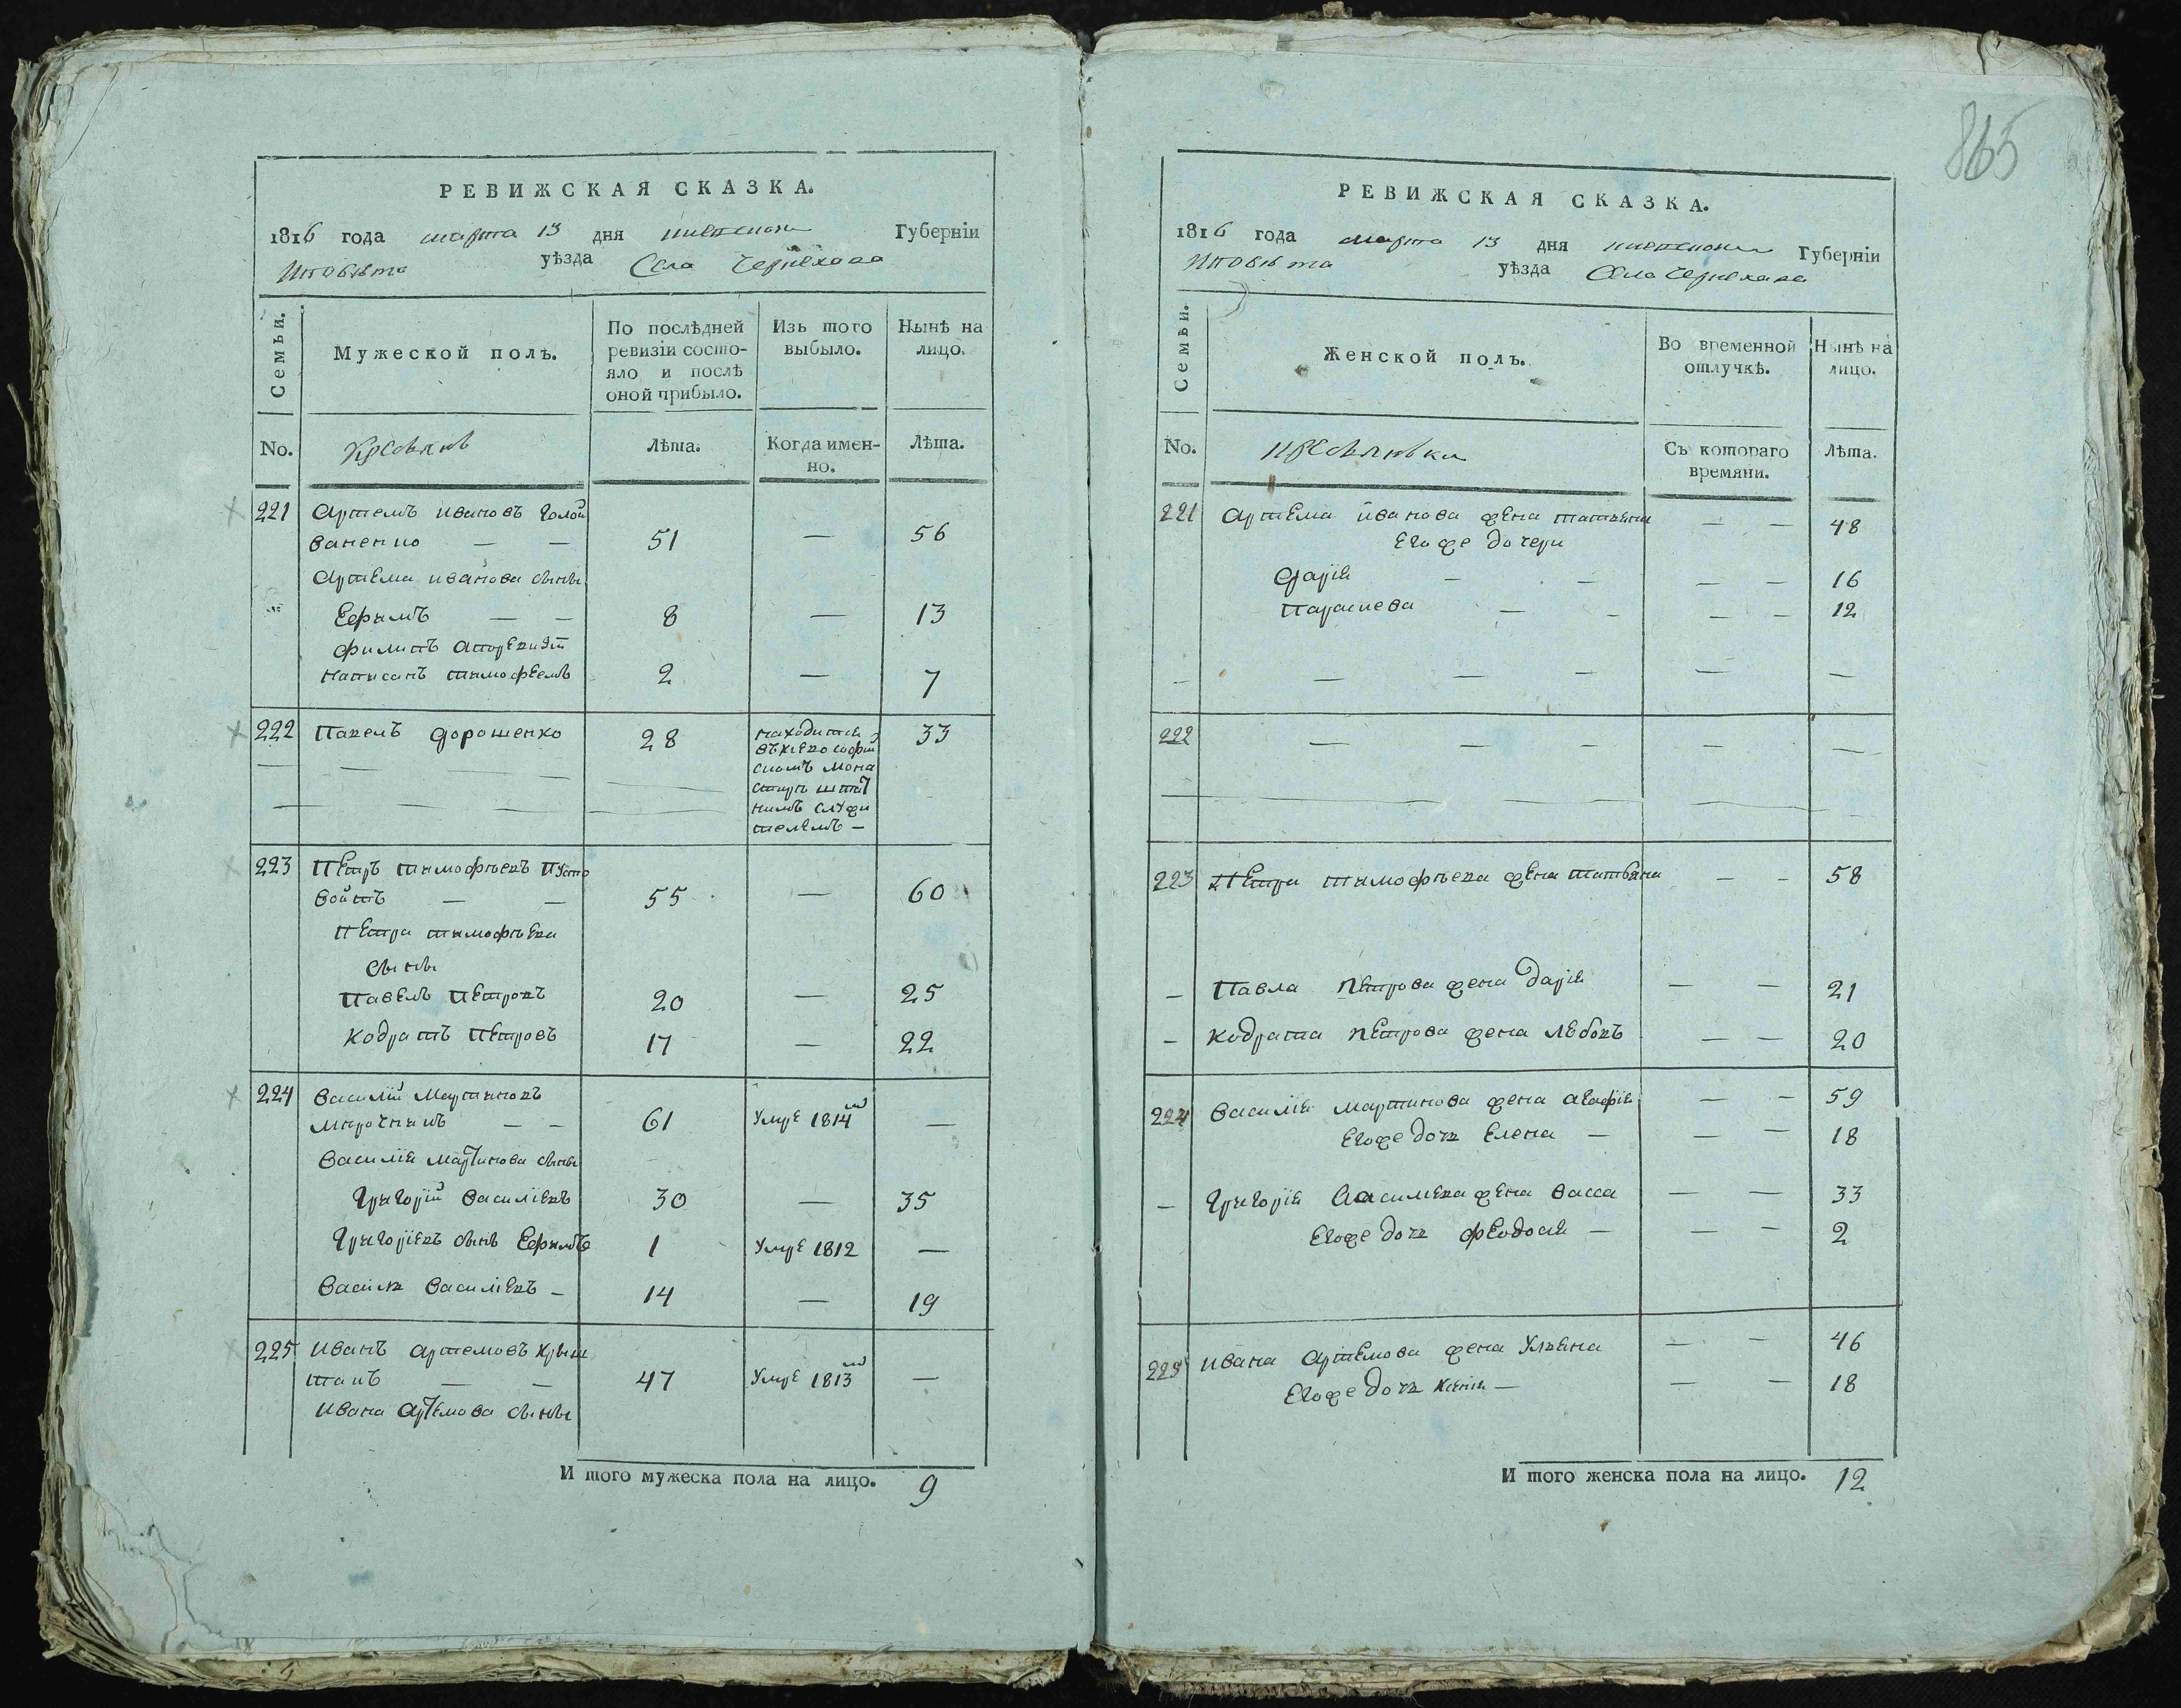 РЕВИЖСКАЯ СКАЗКА.
1816 года марта 13 дня Губерніи
уѣзда Села Черняхова
Семьи.
Мужеской полъ.
По послѣдней
ревизіи состо-
яло и послѣ
оной прибыло.
Изъ того
выбыло.
Нынѣ на
лицо.
No.
Лѣта.
Когда имен-
но.
Лѣта.
221 Артемъ Ивановъ Голой
ваненко — — 51 — 56
Артема Иванова сынъ
Ефимъ — — 8 — 13
Филипъ
написанъ Тимофеемъ 2 — 7
222 Павелъ Дорошенко 28 находится 33
въ Киево софій
скомъ мона
стырѣ штат
нимъ служи
телемъ —
223 Петръ Тимофѣевъ Пусто
войтъ — — 55 — 60
Петра Тимофѣева
сынъ
Павелъ Петровъ 20 — 25
Кодратъ Петровъ 17 — 22
224 Василій Мартиновъ
Мирочникъ — — 61 Умре 1814 —
Василія Мартинова сынъ
Григорій Василіевъ 30 — 35
Григоріевъ сынъ Ефимъ 1 Умре 1812 —
Василь Василіевъ — 14 — 19
225 Иванъ Артемовъ Крыш
танъ — — 47 Умре 1813 —
Ивана Артемова сынъ
И того мужеска пола на лицо. 9
865
РЕВИЖСКАЯ СКАЗКА.
1816 года марта 13 дня Губерніи
уѣзда Села Черняхова
Семьи.
Женской полъ.
Во временной
отлучкѣ.
Нынѣ на
лицо.
No.
Съ котораго
времяни.
Лѣта.
221 Артема Иванова жена Татьяна — — 48
Егоже дочери
Дарія — — — — 16
Параскева — — — — 12
— — — — — —
222 — — — — —
223 Петра Тимофѣева жена Татьяна — — 58
— Павла Петрова жена Дарія — — 21
— Кодрата Петрова жена Любовъ — — 20
224 Василія Мартинова жена Агафія — — 59
Егоже дочь Елена — — — 18
— Григорія Василіева жена Васса — — 33
Егоже дочь Феодосія — — — 2
225 Ивана Артемова жена Ульяна — — 46
Егоже дочь Ксенія — — — 18
И того женска пола на лицо. 12